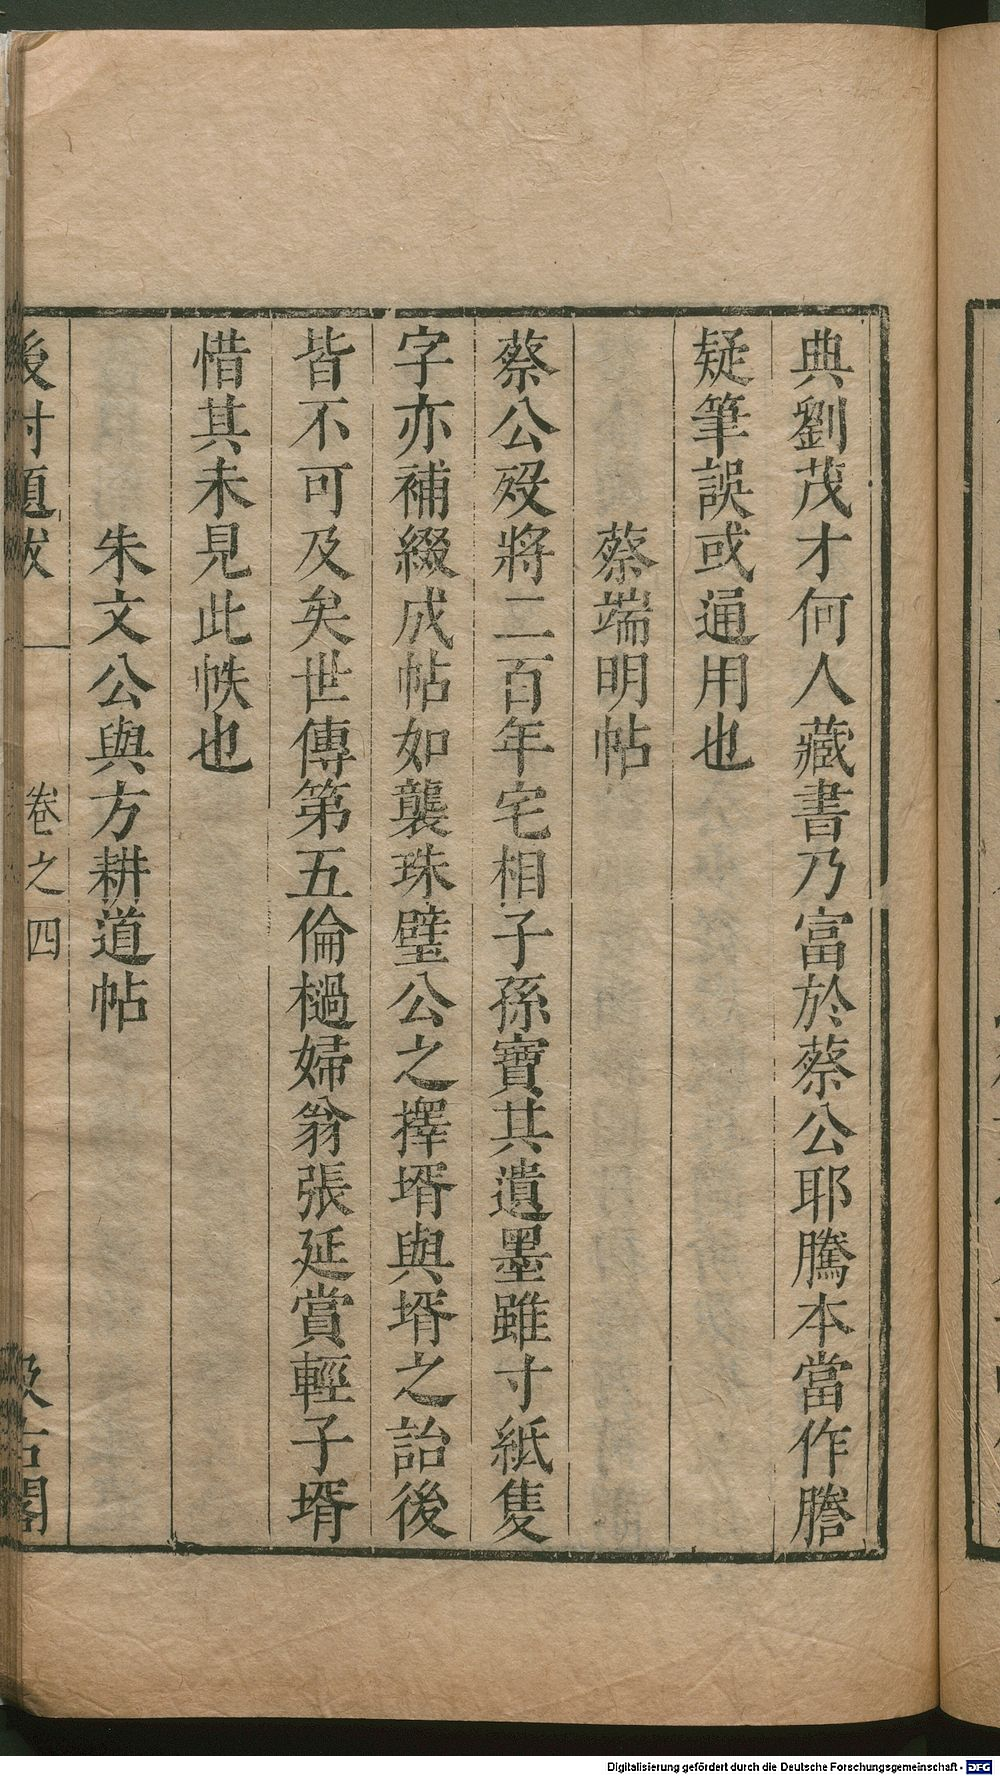 典劉茂才何人藏書乃富於蔡公耶騰本當作謄
疑筆誤或通用也
蔡端明帖
蔡公歿將二百年宅相子孫寶其遺墨雖寸紙隻
字亦補綴成帖如襲珠璧公之擇壻與壻之詒後
皆不可及矣世傳第五倫檛婦翁張延賞輕子壻
惜其未見此帙也
朱文公與方耕道帖
後村題跋 卷之四 汲古閣
Digitalisierung gefördert durch die Deutsche Forschungsgemeinschaft - DFG